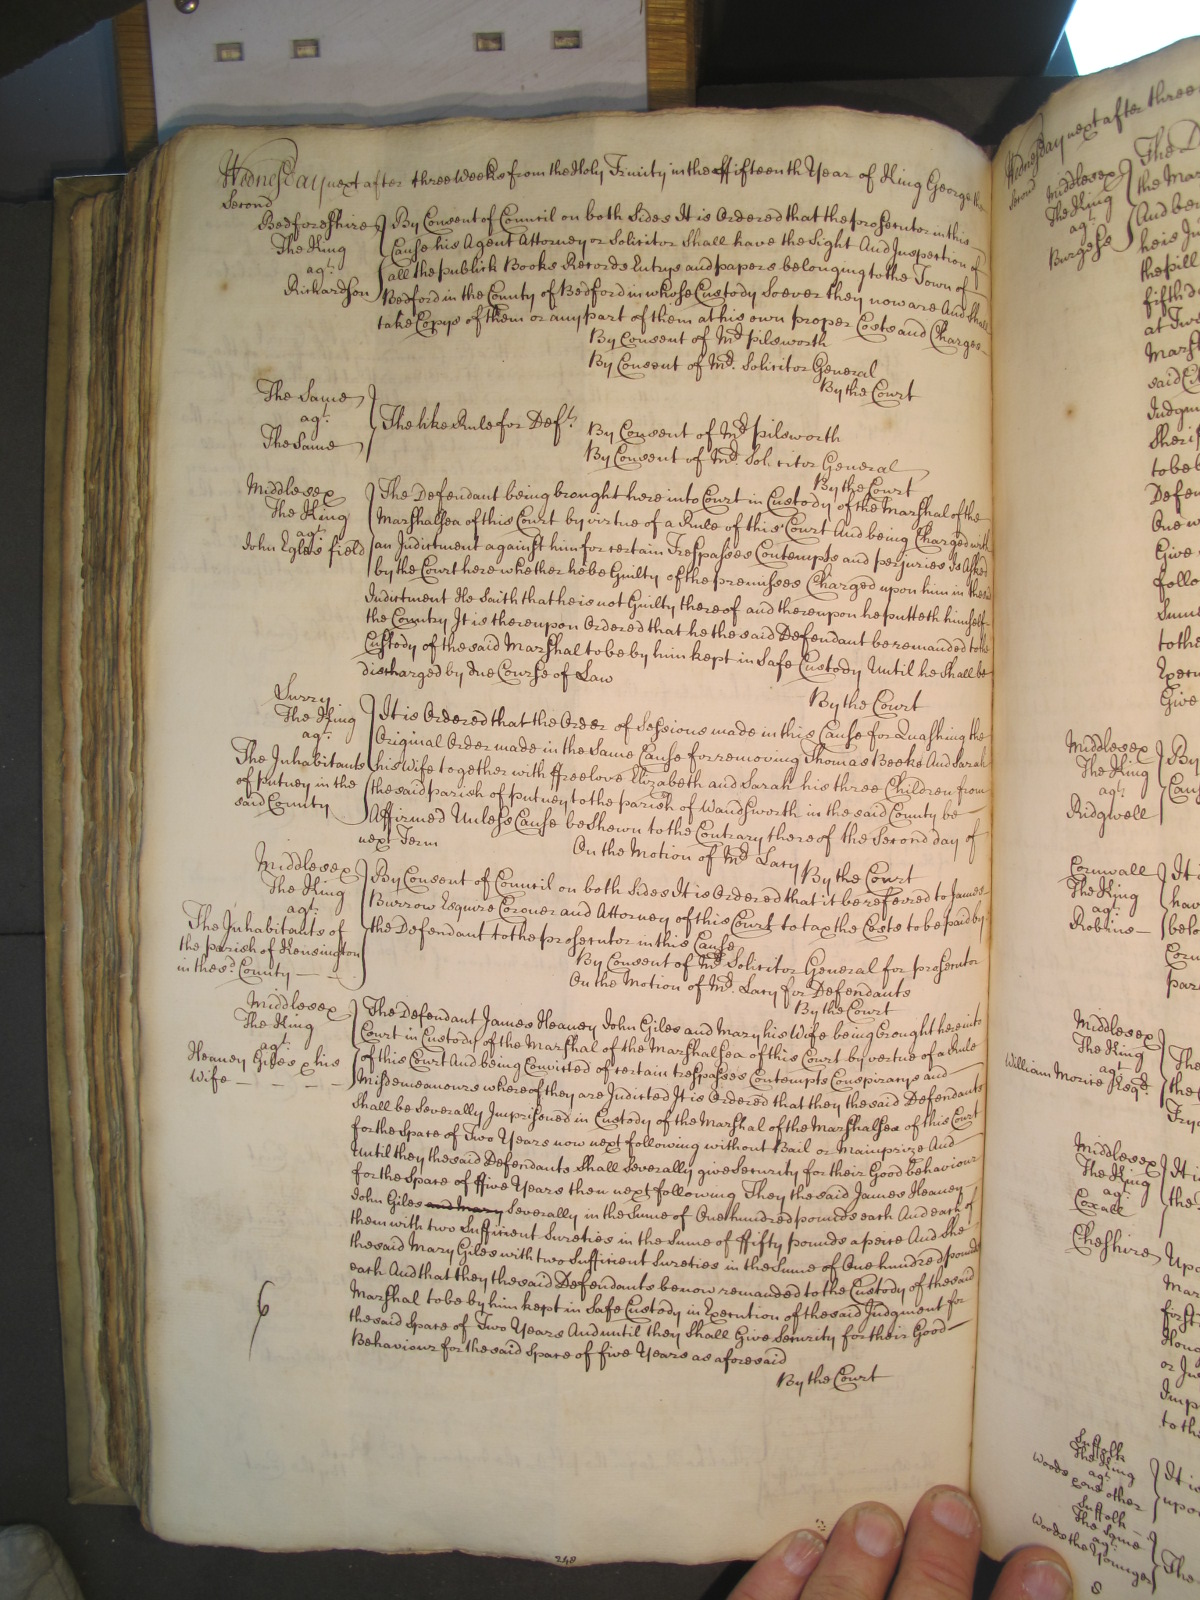 Wednesday next after three Weeks from the Holy Trinity in the ffifteenth Year of King George the
Second
Bedfordshire
The King
agt.
Richardson
By Consent of Council on both Sides It is Ordered that the prosecutor in this
Cause his Agent Attorney or Solicitor Shall have the Sight And Inspection of
all the publick Books Records Entrys and papers belonging to the Town of
Bedford in the County of Bedford in whose Custody Soever they now are And Shall
take Copys of them or any part of them at his own proper Costs and Charges
By Consent of Mr. pilsworth
By Consent of Mr. Solicitor General
By the Court
The Same
agt.
The Same
The like Rule for Deft.
By Consent of Mr. pilsworth
By Consent of Mr. Solicitor General
By the Court
Middlesex
The King
agt.
John Eglesfield
The Defendant being brought here into Court in Custody of the Marshal of the
Marshalsea of this Court by virtue of a Rule of this Court And being Charged with
an Indictment against him for certain Trespasses Contempts and perjuries Is Asked
by the Court here whether he be Guilty of the premisses Charged upon him in the said
Indictment He Saith that he is not Guilty thereof and thereupon he putteth himself
the Country It is thereupon Ordered that he the said Defendant be remanded to the
Custody of the said Marshal to be by him kept in Safe Custody Until he Shall be
discharged by due Course of Law
By the Court
Surry
The King
agt.
The Inhabitants
of putney in the
said County
It is Ordered that the Order of Sessions made in this Cause for Quashing the
Original Order made in the Same Cause for removing Thomas Beeke And Sarah
his Wife together with ffreelove Elizabeth and Sarah his three Children from
the said parish of putney to the parish of Wandsworth in the said County be
Affirmed Unless Cause be Shewn to the Contrary thereof the Second day of
next Term
On the Motion of Mr. Lacy
By the Court
Middlesex
The King
agt.
The Inhabitants of
the parish of Kensington
in the sd. County
By Consent of Council on both Sides It is Ordered that it be referred to James
Burrow Esquire Coroner and Attorney of this Court to tax the Costs to be paid by
the Defendant to the prosecutor in this Cause
By Consent of Mr. Solicitor General for prosecutor
On the Motion of Mr. Lacy for Defendants
By the Court
Middlesex
The King
agt.
Heaney Giles & his
Wife
The Defendant James Heaney John Giles and Mary his Wife being brought here into
Court in Custody of the Marshal of the Marshalsea of this Court by vertue of a Rule
of this Court And being Convicted of certain trespasses Contempts Conspiracys and
Misdemeanours whereof they are Indicted It is Ordered that they the said Defendants
Shall be Severally Imprisoned in Custody of the Marshal of the Marshalsea of this Court
for the Space of Two Years now next following without Bail or Mainprize And
Until they the said Defendants Shall Severally give Security for their Good behaviour
for the Space of ffive Years then next following They the said James Heaney
John Giles and Mary Severally in the Sume of One hundred pounds each And each of
them with two Sufficient Sureties in the Sume of ffifty pounds a peice And She
the said Mary Giles with two Sufficient Sureties in the Sume of One hundred pounds
each And that they the said Defendants be now remanded to the Custody of the said
Marshal to be by him kept in Safe Custody in Execution of the said Judgment for
the said Space of Two Years And until they Shall Give Security for their Good
Behaviour for the said Space of five Years as aforesaid
By the Court
6
248
Wednesday next after three
Second
Middlesex
The King
agt.
Burgess
the Mar
And bei
the pill
fifth d
at Two
Marsh
said
Judgm
Sheri
to be
Defen
One w
Give
follo
Sume
to the
Execu
Give
Middlesex
The King
agt.
Ridgwell
By
Cau
Cornwall
The King
agt.
Robins
It i
hav
belo
Corn
par
Middlesex
The King
agt.
William Morice Esqr.
The
the
Try
Middlesex
The King
agt.
Coxall
It i
the
Cheshire
Upo
Mar
first
or Ju
Imp
to the
Suffolk
The King
agt.
Woods & one other
It is
upo
Suffolk
The Same
agt.
Woods the Younger
The
8